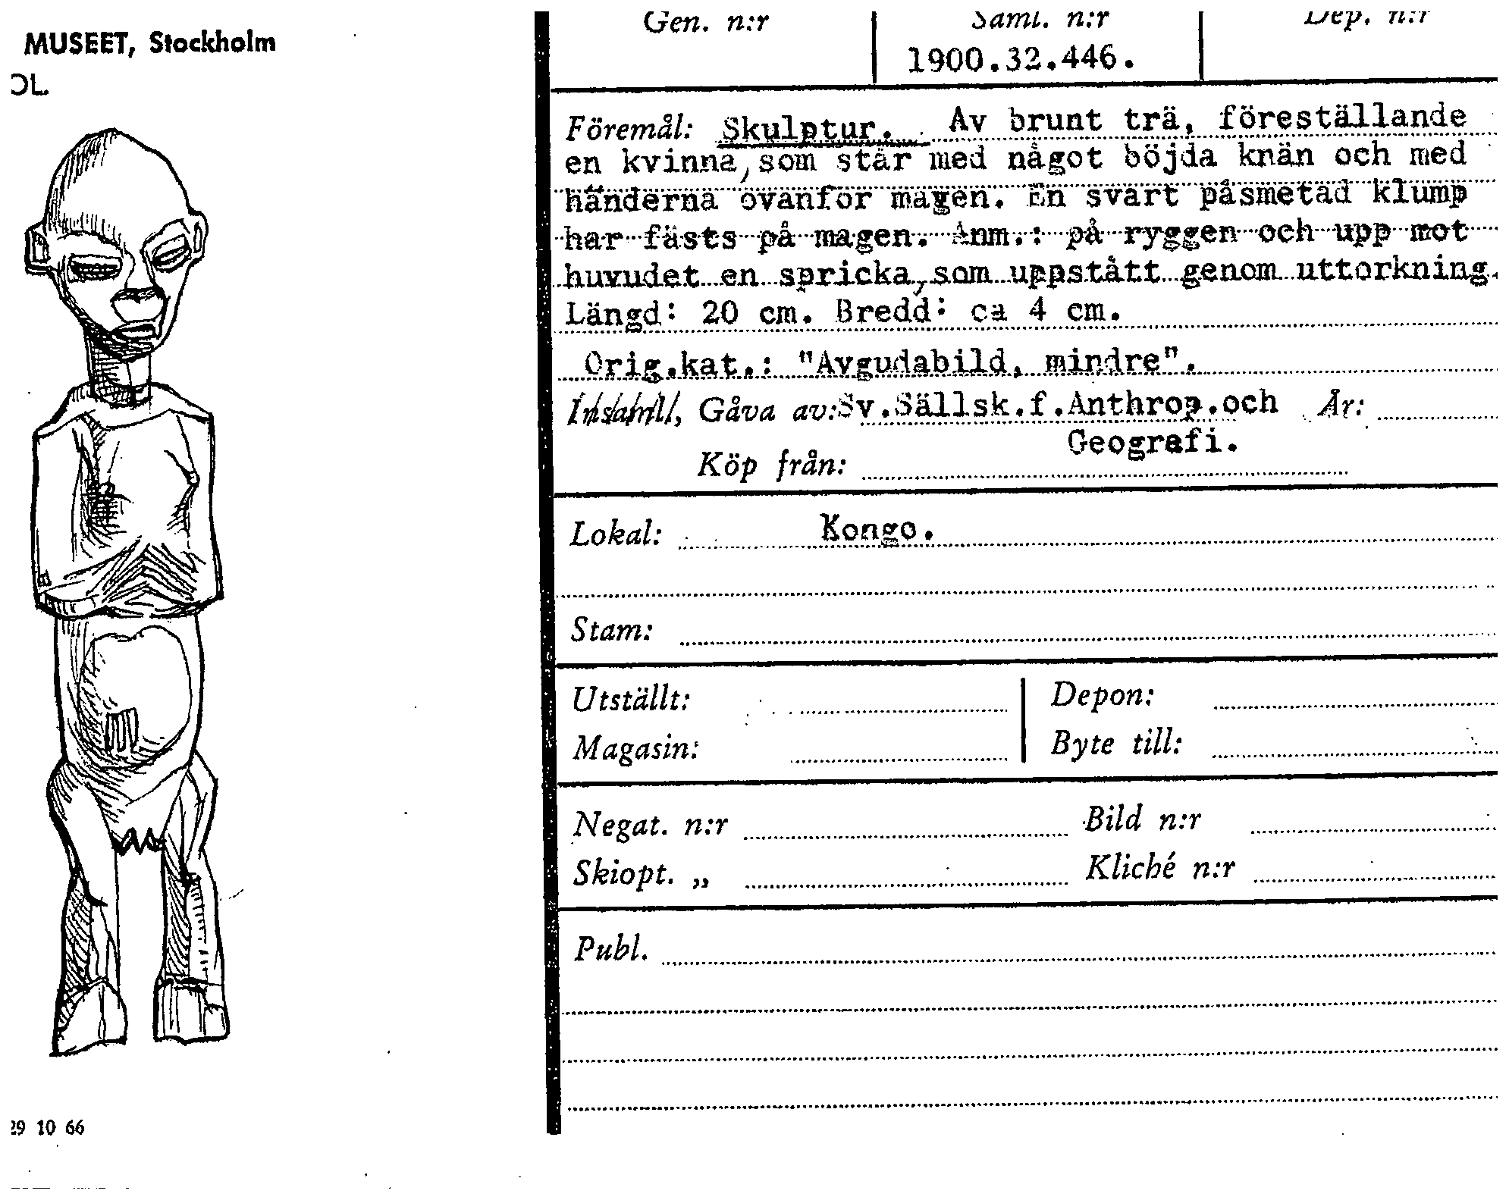 MUSEET, Stockholm
OL.
Gen. n:r
Saml. n:r
Dep. n:r
1900.32.446.
Föremål: Skulptur. Av brunt trä, föreställande
en kvinna, som står med något böjda knän och med
händerna ovanför magen. En svart påsmetad klump
har fästs på magen. Anm.: på ryggen och upp mot
huvudet en spricka, som uppstått genom uttorkning.
Längd: 20 cm. Bredd: ca 4 cm.
Orig.kat.: "Avgudabild, mindre".
Insaml, Gåva av: Sv.Sällsk.f.Anthrop.och År:
Geografi.
Köp från:
Lokal: Kongo.
Stam:
Utställt:
Depon:
Magasin:
Byte till:
Negat. n:r
Bild n:r
Skiopt. „
Kliché n:r
Publ.
29 10 66